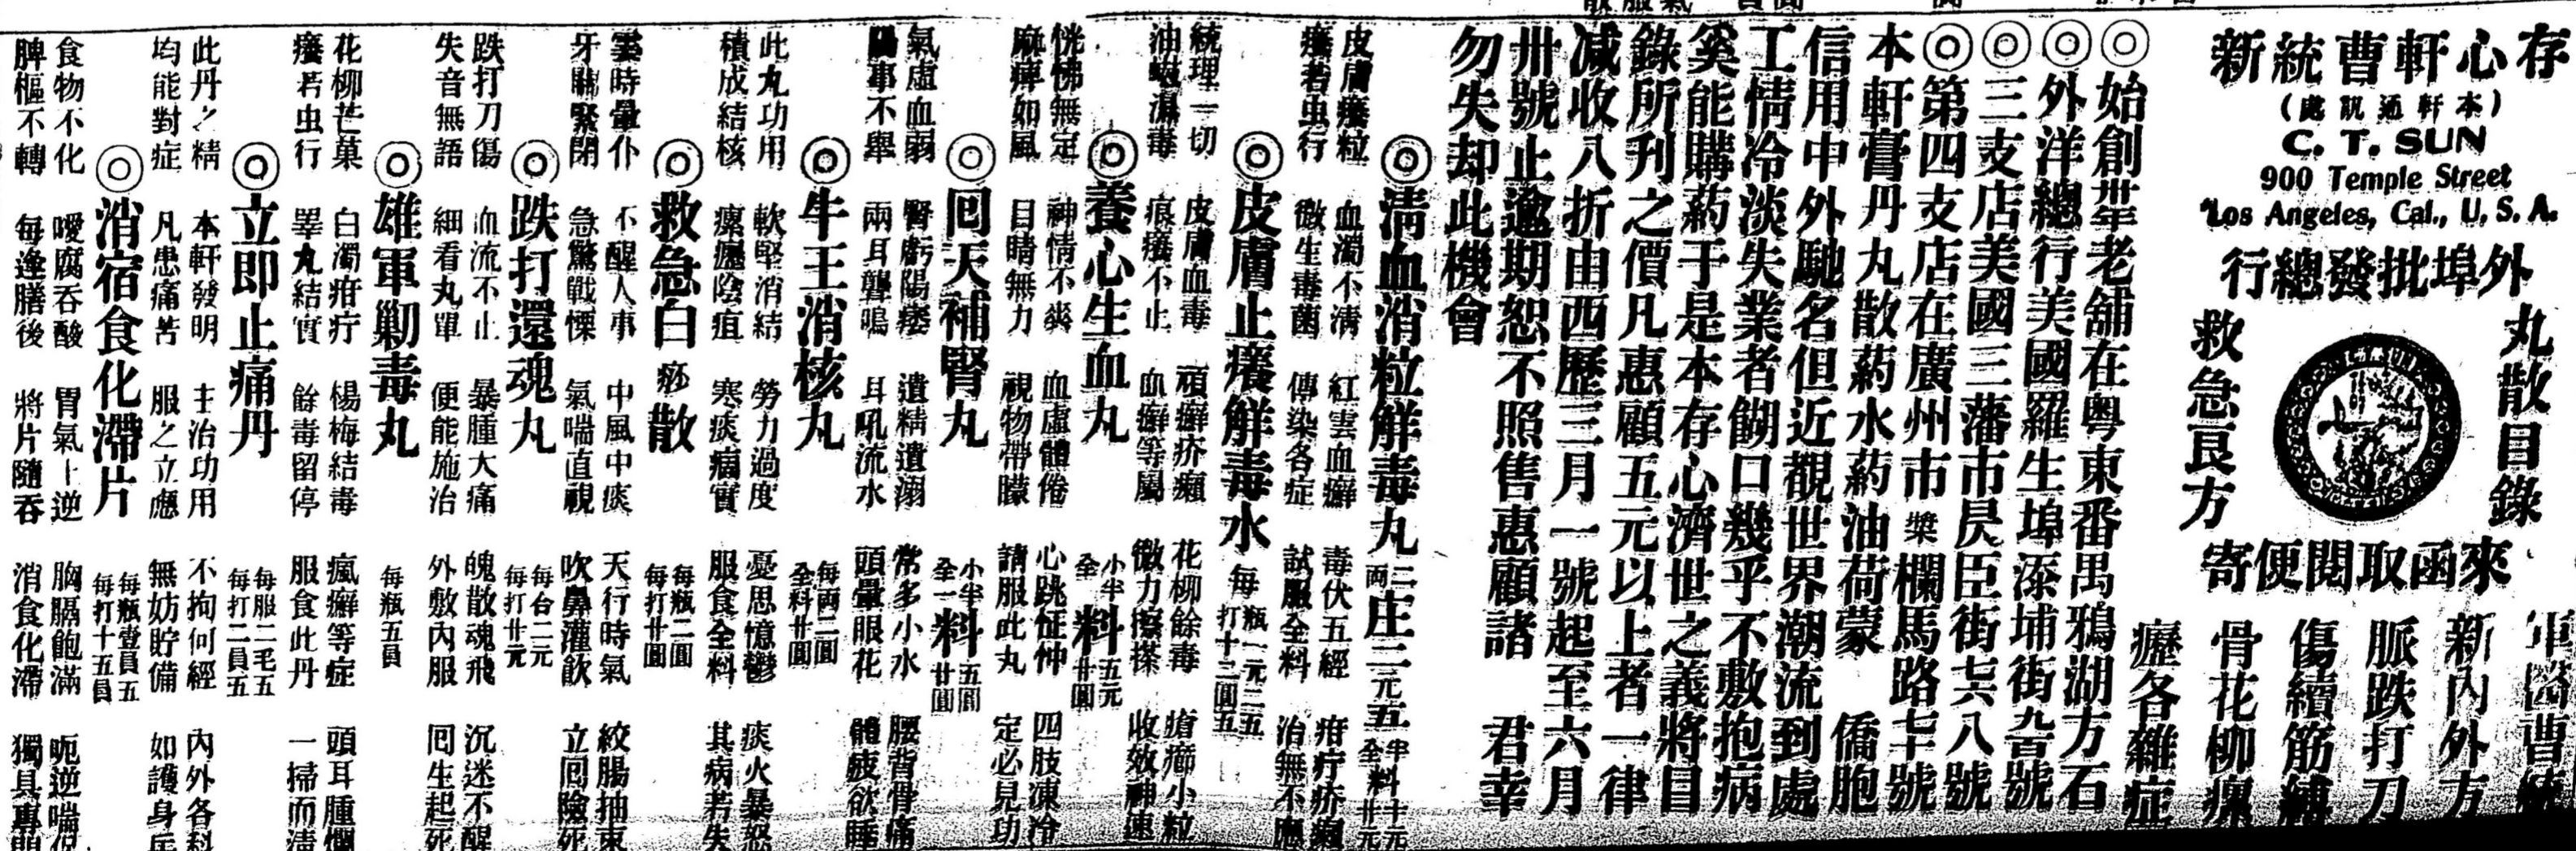 存心軒曹統新
(本軒通訊處)
C. T. SUN
900 Temple Street
Los Angeles, Cal., U. S. A.
外埠批發總行
丸散目錄
救急良方
來函取閱便寄
軍醫曹統
新內外方
脈跌打刀
傷續筋縛
骨花柳瘰
癧各雜症
◎始創老舖在粵東番禺鴉湖方石
◎外洋總行美國羅生埠
◎三支店美國三藩市
◎第四支店在廣州市槳欄馬路
本軒膏丹丸散葯水葯油荷蒙 僑胞
信用中外馳名但近觀世界潮流到處
工情冷淡失業者餬口幾乎不敷抱病
奚能購葯于是本存心濟世之義將目
錄所刋之價凡惠顧五元以上者一律
減收八折由西歷三月一號起至六月
卅號止逾期恕不照售惠顧諸 君幸
勿失却此機會
◎清血消粒解毒丸 二両庄二元五 半料十元 全料廿元
皮膚癢粒 血濁不清 紅雲血癬 毒伏五經 疳疔疥癩
癢若虫行 微生毒菌 傳染各症 試服全料 治無不應
◎皮膚止癢解毒水 每瓶一元二五 打十二圓五
統理一切 皮膚血毒 頑癬疥癩 花柳餘毒 瘡癤小粒
油蠟濕毒 痕癢不止 血癬等屬 微力擦搽 收效神速
◎養心生血丸 小半料五元 全料廿圓
恍怫無定 神情不爽 血虛體倦 心跳怔忡 四肢凍冷
麻痺如風 目睛無力 視物帶矇 請服此丸 定必見功
◎回天補腎丸 小半料五圓 全一料廿圓
氣虛血弱 腎虧陽痿 遺精遺溺 常多小水 腰背骨痛
陽事不舉 兩耳聾鳴 耳吼流水 頭暈眼花 體疲欲睡
◎牛王消核丸 每両二圓 全料廿圓
此丸功用 軟堅消結 勞力過度 憂思憶鬱 痰火暴怒
積成結核 瘰癧陰疽 寒痰癘實 服食全料 其病若失
◎救急白痧散 每瓶二圓 每打廿圓
霎時暈仆 不醒人事 中風中痰 天行時氣 絞腸抽東
牙關緊閉 急驚戰慄 氣喘直視 吹鼻灌飲 立回險死
◎跌打還魂丸 每台二元 每打廿元
跌打刀傷 血流不止 暴腫大痛 魄散魂飛 沉迷不醒
失音無語 細看丸單 便能施治 外敷內服 回生起死
◎雄軍勦毒丸 每瓶五員
花柳芒菓 白濁疳疔 楊梅結毒 瘋癬等症 頭耳腫爛
癢若虫行 睪丸結實 餘毒留停 服食此丹 一掃而清
◎立即止痛丹 每服二毛五 每打二員五
此丹之精 本軒發明 主治功用 不拘何經 內外各科
均能對症 凡患痛苦 服之立應 無妨貯備 如護身兵
◎消宿食化滯片 每瓶壹員五 每打十五員
食物不化 噯腐吞酸 胃氣上逆 胸膈飽滿 呃逆喘促
脾樞不轉 每逢膳後 將片隨吞 消食化滯 獨具專門